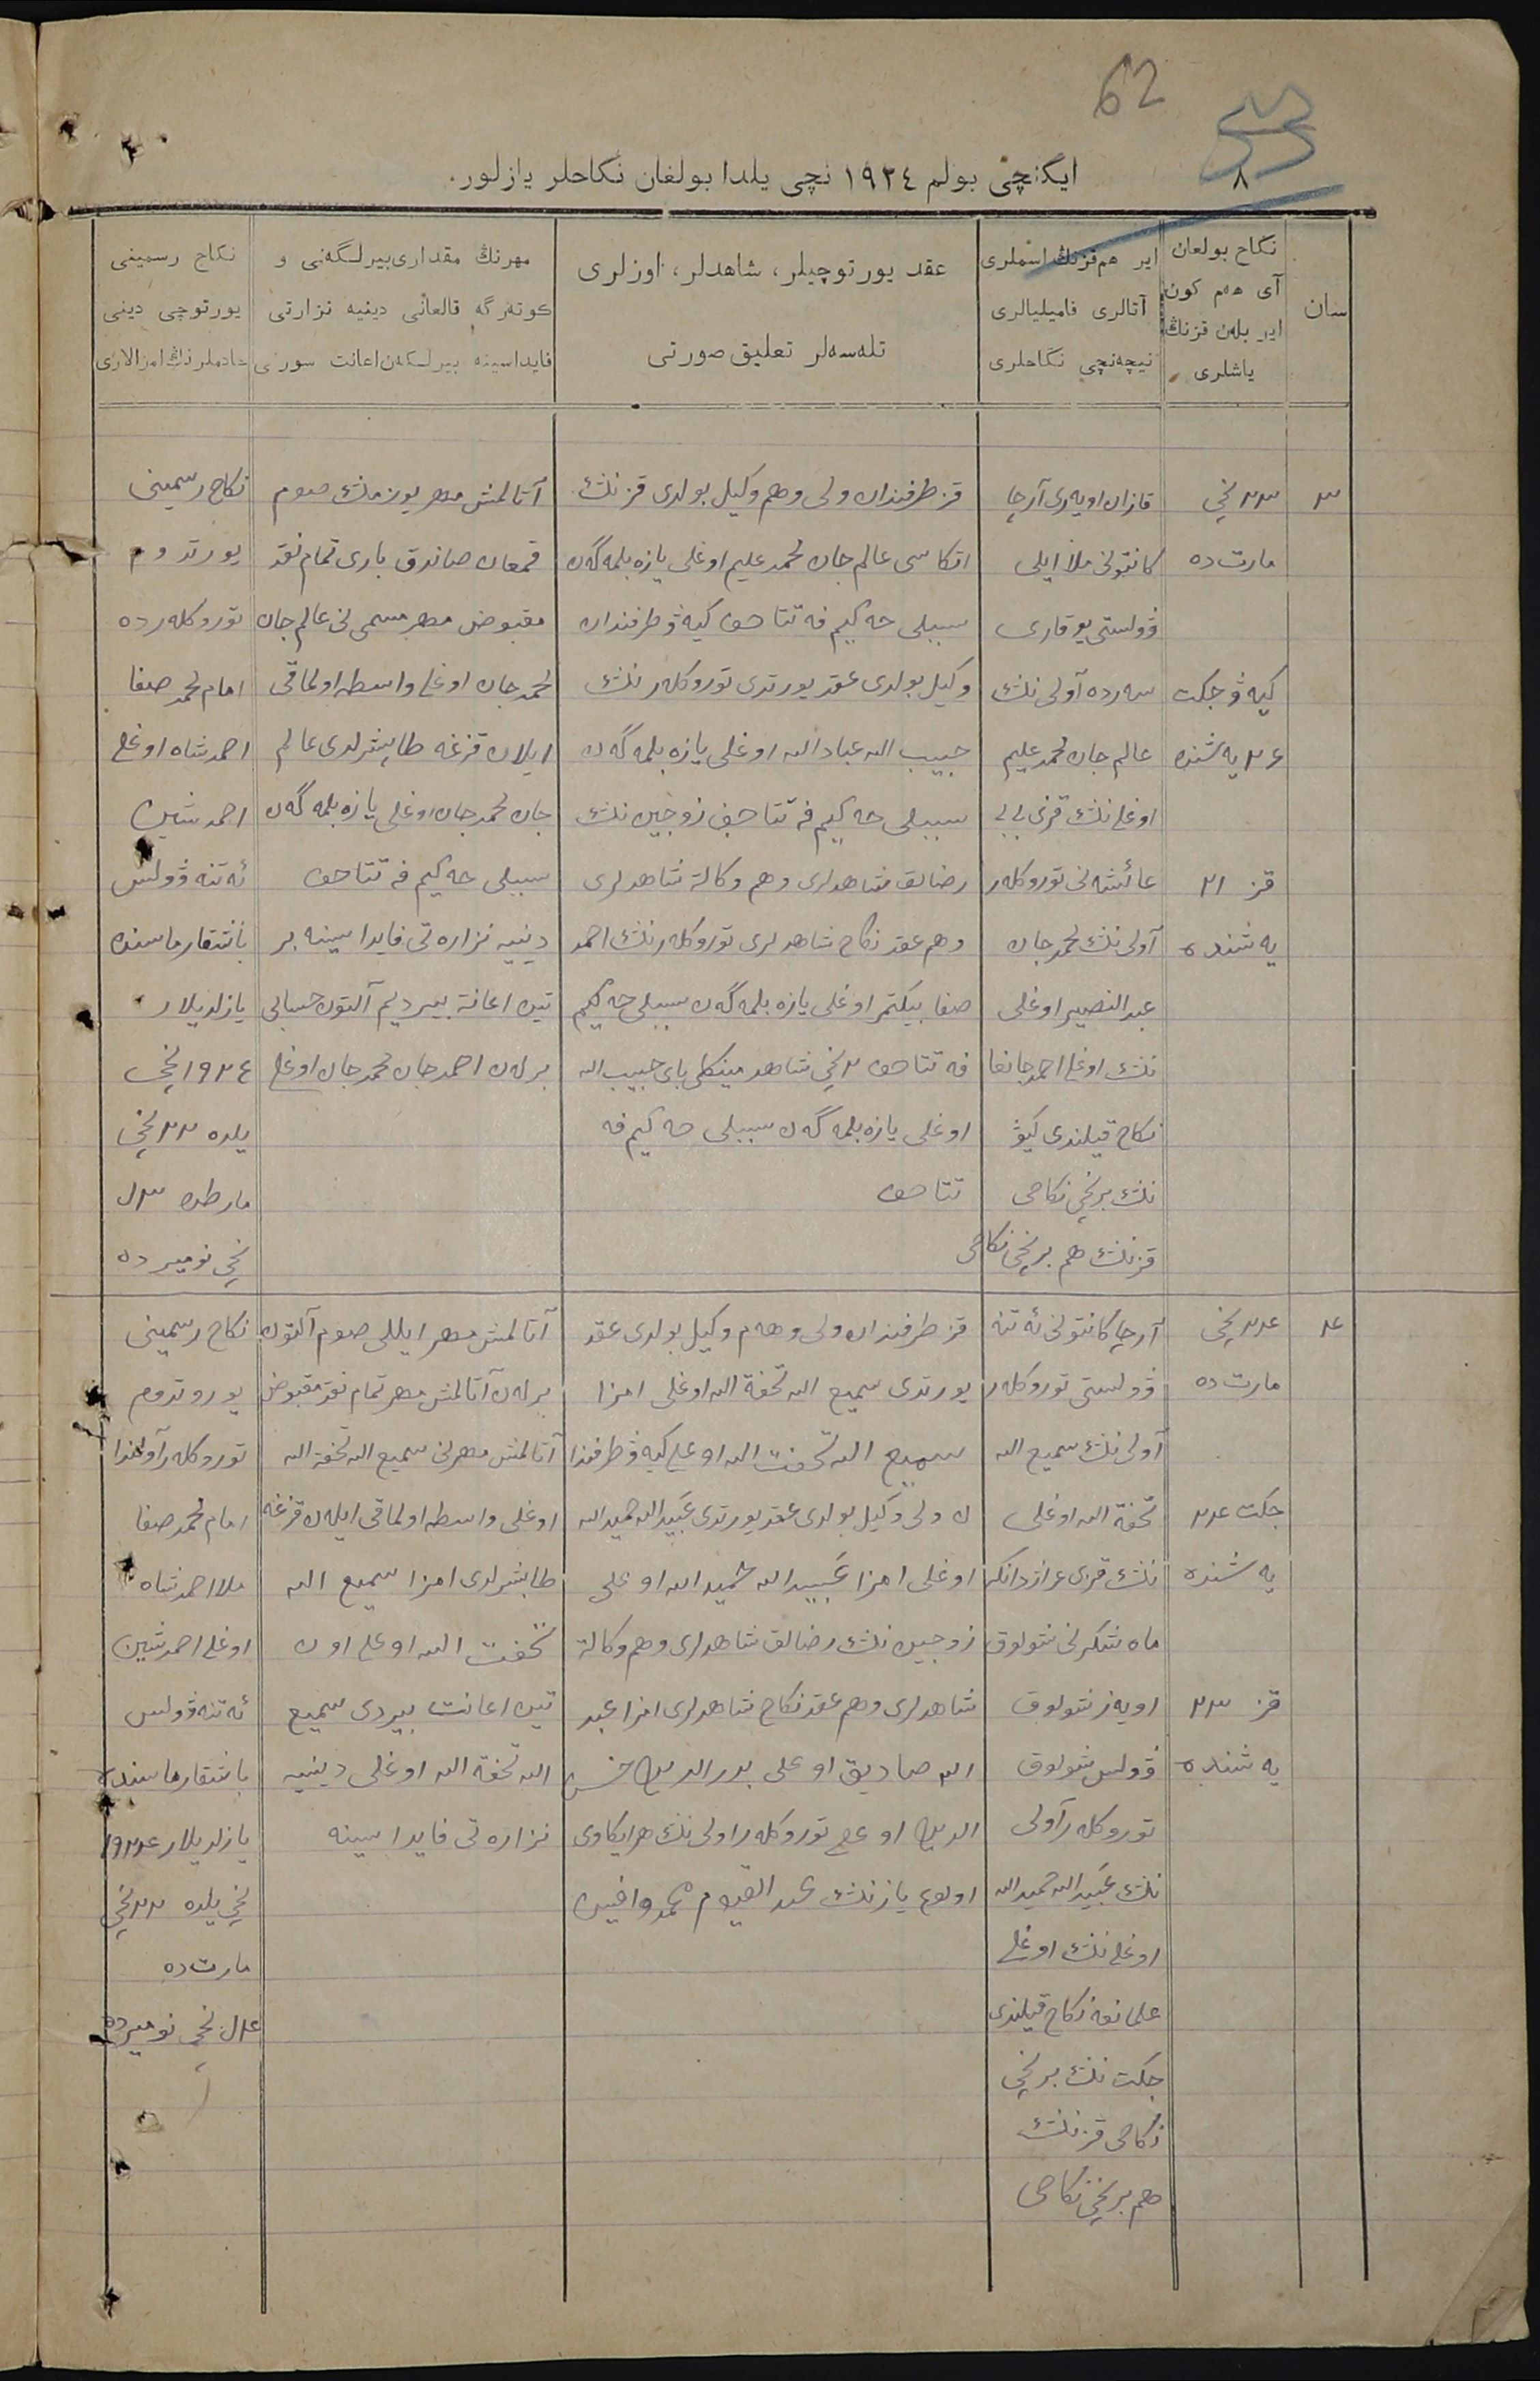 62
٨
ایکنچی بولم ١٩٢٤ نچی یلدا بولغان نکاحلر یازلور.
سان
نکاح بولغان
آی هەم کون
ایر بلەن قزنڭ
یاشلری
ایر هم قزنڭ اسملری
آتالری فامیلیالری
نیچەنچی نکاحلری
عقد یورتوچیلر، شاهدلر، اوزلری
تلەسەلر تعلیق صورتی
مهرنڭ مقداری بیرلگەنی و
کوتەرگە قالغانی دینیه نزارتی
فایداسینه بیرلگەن اعانت سورتی
نکاح رسمینی
یورتوچی دینی
خادملرنڭ امزالاری
٣
٢٣ نچی
مارت ده
کیه ۋ جکت
٢٤ یه شنده
قز ٢١
یه شنده
قازان اویەزی آرچا
کانتونی ملا ایلی
ۋولستی یوقاری
سەردە آولی ننڭ
عالم جان محمد علیم
اوغلی ننڭ قزی بی بی
عائشه نی توروکلەر
آولی ننڭ محمد جان
عبد النصیر اوغلی
ننڭ اوغلی احمد جانغا
نکاح قیلندی کیۋ
ننڭ برنچی نکاحی
قزننڭ هم برنچی نکاحی
قز طرفندان ولی و هم وکیل بولدی قز ننڭ
اتکاسی عالم جان محمد علیم اوغلی یازه بلمەگەن
سببلی حەکیم فەتتاحف کیەۋ طرفندان
وکیل بولدی عقد یورتدی توروکلەر ننڭ
حبیب الله عباد الله اوغلی یازه بلمەگەن
سببلی حەکیم فەتتاحف زوجین ننڭ
رضالق شاهدلری و هم وکالة شاهدلری
و هم عقد نکاح شاهدلری توروکلەر ننڭ احمد
صفا بیکتمر اوغلی یازه بلمەگەن سببلی حەکیم
فەتتاحف ٢ نچی شاهد مینکلی بای حبیب الله
اوغلی یازه بلمەگەن سببلی حەکیم فه
تتاحف
آتالمش مهر یوز منڭ صوم
قمغان صاندق باری تمام نقد
مقبوض مهر مسمی نی عالم جان
محمد جان اوغلی واسطه اولماقی
ایلان قزغه طابشرلدی عالم
جان محمد جان اوغلی یازه بلمەگەن
سببلی حەکیم فەتتاحف
دینیه نزارەتی فایداسینه بر
تین اعانة بیردیم آلتون حسابی
برلەن احمد جان محمد جان اوغلی
نکاح رسمینی
یورتدوم
توروکلەردە
امام محمد صفا
احمد شاه اوغلی
احمدشین
ئەتنە ۋولس
باشقارماسنده
یازلدیلار
١٩٢٤ نچی
یلده ٢٢ نچی
مارطده ٣ ل
نچی نومیرده
٤
٢٤ نچی
مارت ده
جکت ٢٤
یه شنده
قز ٢٣
یه شنده
آرچا کانتونی ئەتنە
ۋولستی توروکلەر
آولی ننڭ سمیع الله
تحفة الله اوغلی
ننڭ قزی
ماه شکرنی شولوق
اویەز شولوق
ۋولس شولوق
توروکلەر آولی
ننڭ عبید الله حمید الله
اوغلی ننڭ اوغلی
نکاح قیلندی
جکت ننڭ برنچی
نکاحی قزننڭ
هم برنچی نکاحی
قز طرفندان ولی و هەم وکیل بولدی عقد
یورتدی سمیع الله تحفة الله اوغلی امزا
سمیع الله تحفت الله اوغلی کیەۋ طرفندا
ن ولی وکیل بولدی عقد یورتدی عبید الله حمید الله
اوغلی امزا عبید الله حمید الله اوغلی
زوجین ننڭ رضالق شاهدلری و هم وکالة
شاهدلری و هم عقد نکاح شاهدلری امزا عبد
الله صادیق اوغلی بدر الدین
الدین اوغلی توروکلەر اولی ننڭ هر ایکاوی
عبد القیوم
آتالمش مهر ایللی صوم آلتون
برلەن آتالمش مهر تمام نقد مقبوض
آتالمش مهرنی سمیع الله تحفة الله
اوغلی واسطه اولماقی ایلەن قزغه
طابشرلدی امزا سمیع الله
تحفت الله اوغلی اون
تین اعانت بیردی سمیع
الله تحفة الله اوغلی دینیه
نزارەتی فایداسینه
نکاح رسمینی
یوروتدوم
توروکلەر آولندا
امام محمد صفا
ملا احمد شاه
اوغلی احمدشین
ئەتنە ۋولس
باشقارماسنده
یازلدیلار ١٩٢٤
نچی یلده ٢٢ نچی
مارت ده
٤ ل نچی نومیرده